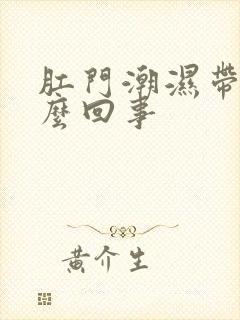 肛門潮濕帶
麼回事
黃介生